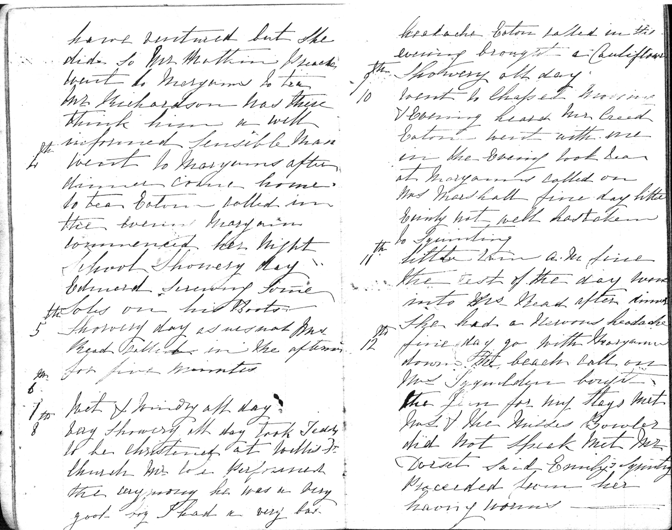 have ventured but She
did. So Mr Matthin Preach
went to Maryanns to tea
Mr Richardson was there
think him a well
informed Sensible Man
4th went to Maryanns after
dinner come home
to tea Eaton called in
the evening Maryann
commenced her Night
School Showery day
Edward Screwing Some
Soles on his Boots
5th Showery day as usual Mrs
Read called in in the afternoon
for five minutes
6
7 Wet & Windy all day
8 Very Showery all day took Teddy
to be christened at Willis St
Church Mr performed
the cerymony he was a very
good boy I had a very bad
headache Eaton called in the
evening brought a Cauliflower
9th Showery all day
10 went to Chapel Morning
& Evening heard Mr Creed
Eaton went with me
in the Evening took tea
at Maryanns called on
Mrs Marshall fine day little
Emily not well has taken
to Squinting
11th little rain A.M fine
the rest of the day went
into Mrs Read after dinner
She had a Nervous headache
12 fine day go with Maryann
down the beach call on
Mrs bought
the for my Stays Met
Mrs & the Misses Bowler
did Not Speak Met Mr
Dorset Said Emily's Squinting
Proceeded from her
having worms